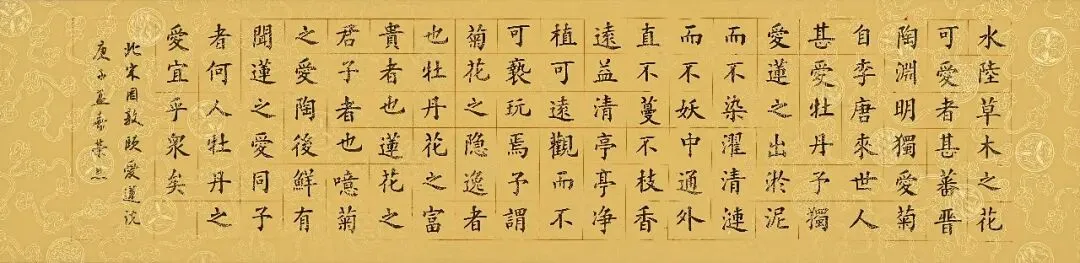 水陸草木之花
可愛者甚蕃晋
陶淵明獨愛菊
自李唐來世人
甚愛牡丹予獨
愛蓮之出淤泥
而不染濯清漣
而不妖中通外
直不蔓不枝香
遠益清亭亭净
植可遠觀而不
可褻玩焉予謂
菊花之隐逸者
也牡丹花之富
貴者也蓮花之
君子者也噫菊
之愛陶後鮮有
聞蓮之愛同予
者何人牡丹之
愛宜乎衆矣
北宋周敦颐爱蓮说
庚子孟